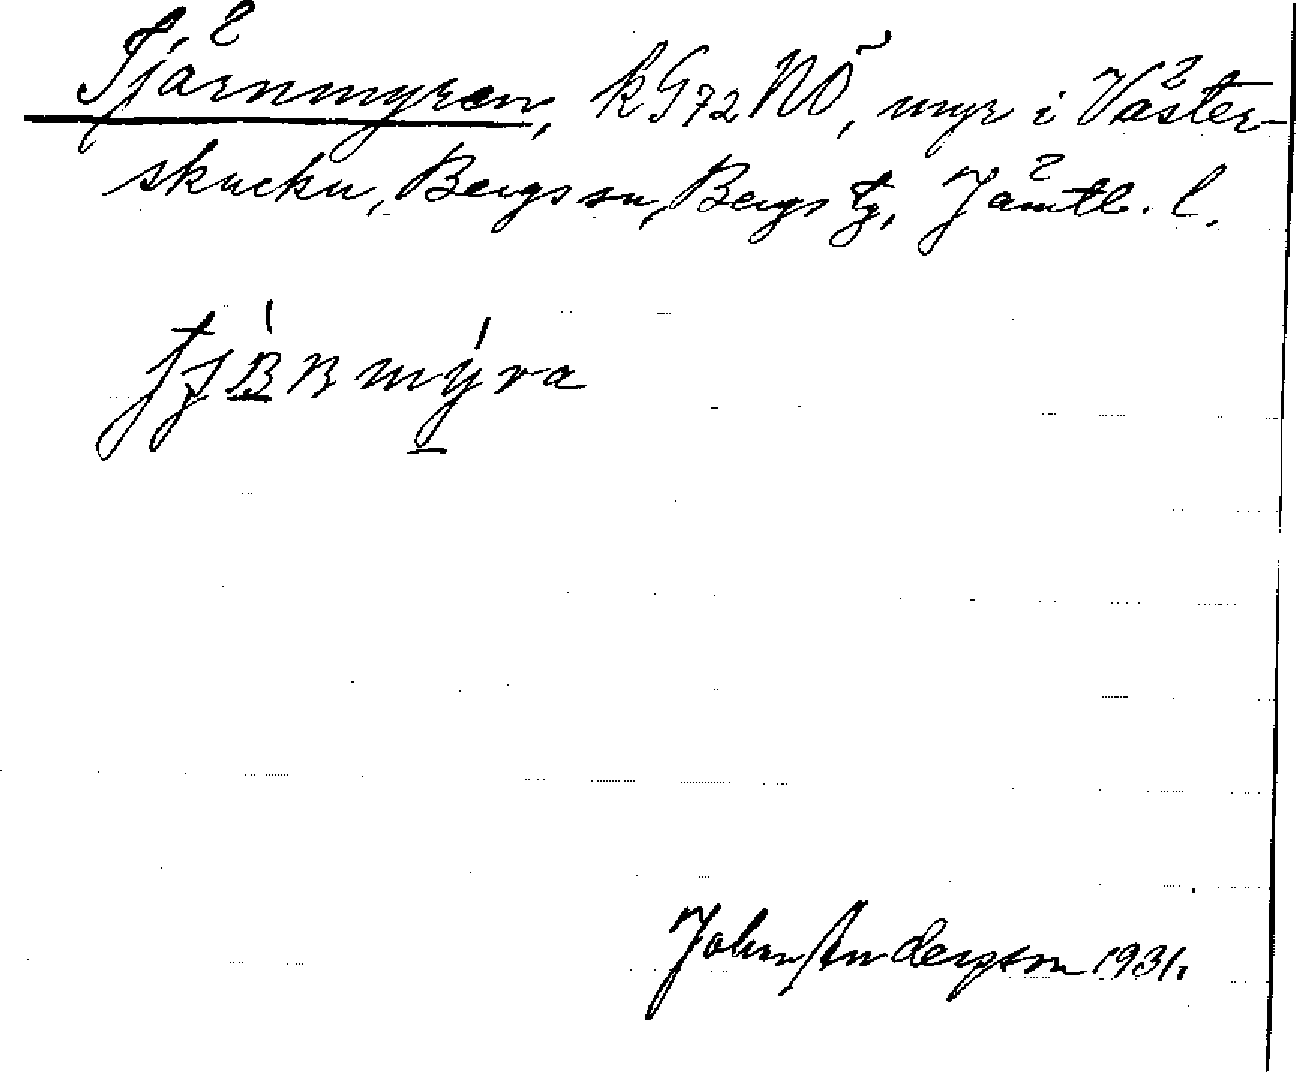 Tjärnmyren, kG72NÖ, myr i Väster-
skucku, Bergs sn, Bergs tg, Jämtl. l.
John Anderson 1931.